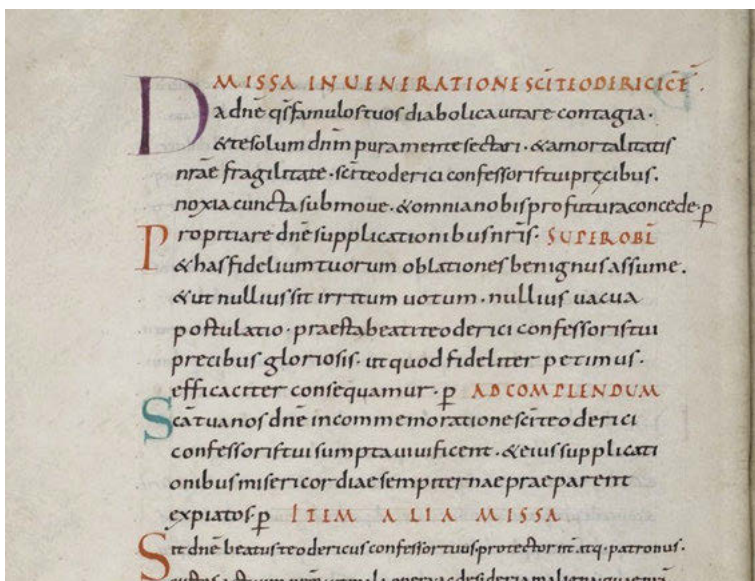 MISSA IN UENERATIONE SCI TEODERICI CF̄
Da dnē qs famulos tuos diabolica uitare contagia.
& te solum dnm pura mente sectari. & a mortalitatis
nrae fragilitate. sci teoderici confessoris tui precibus.
noxia cuncta submoue. & omnia nobis profutura concede. p
Propitiare dnē supplicationibus nris. SUPER OBL
& has fidelium tuorum oblationes benignus assume.
& ut nullius sit irritum uotum. nullius uacua
postulatio. praesta beati teoderici confessoris tui
precibus gloriosis. ut quod fideliter petimus.
efficaciter consequamur. p AD COMPLENDUM
Scā tua nos dnē in commemoratione sci teoderici
confessoris tui sumpta uiuificent. & eius supplicati
onibus misericordiae sempiternae praeparent
expiatos. p ITEM ALIA MISSA
Sit dnē beatus teodericus confessor tuus protector nr̄. atq. patronus.